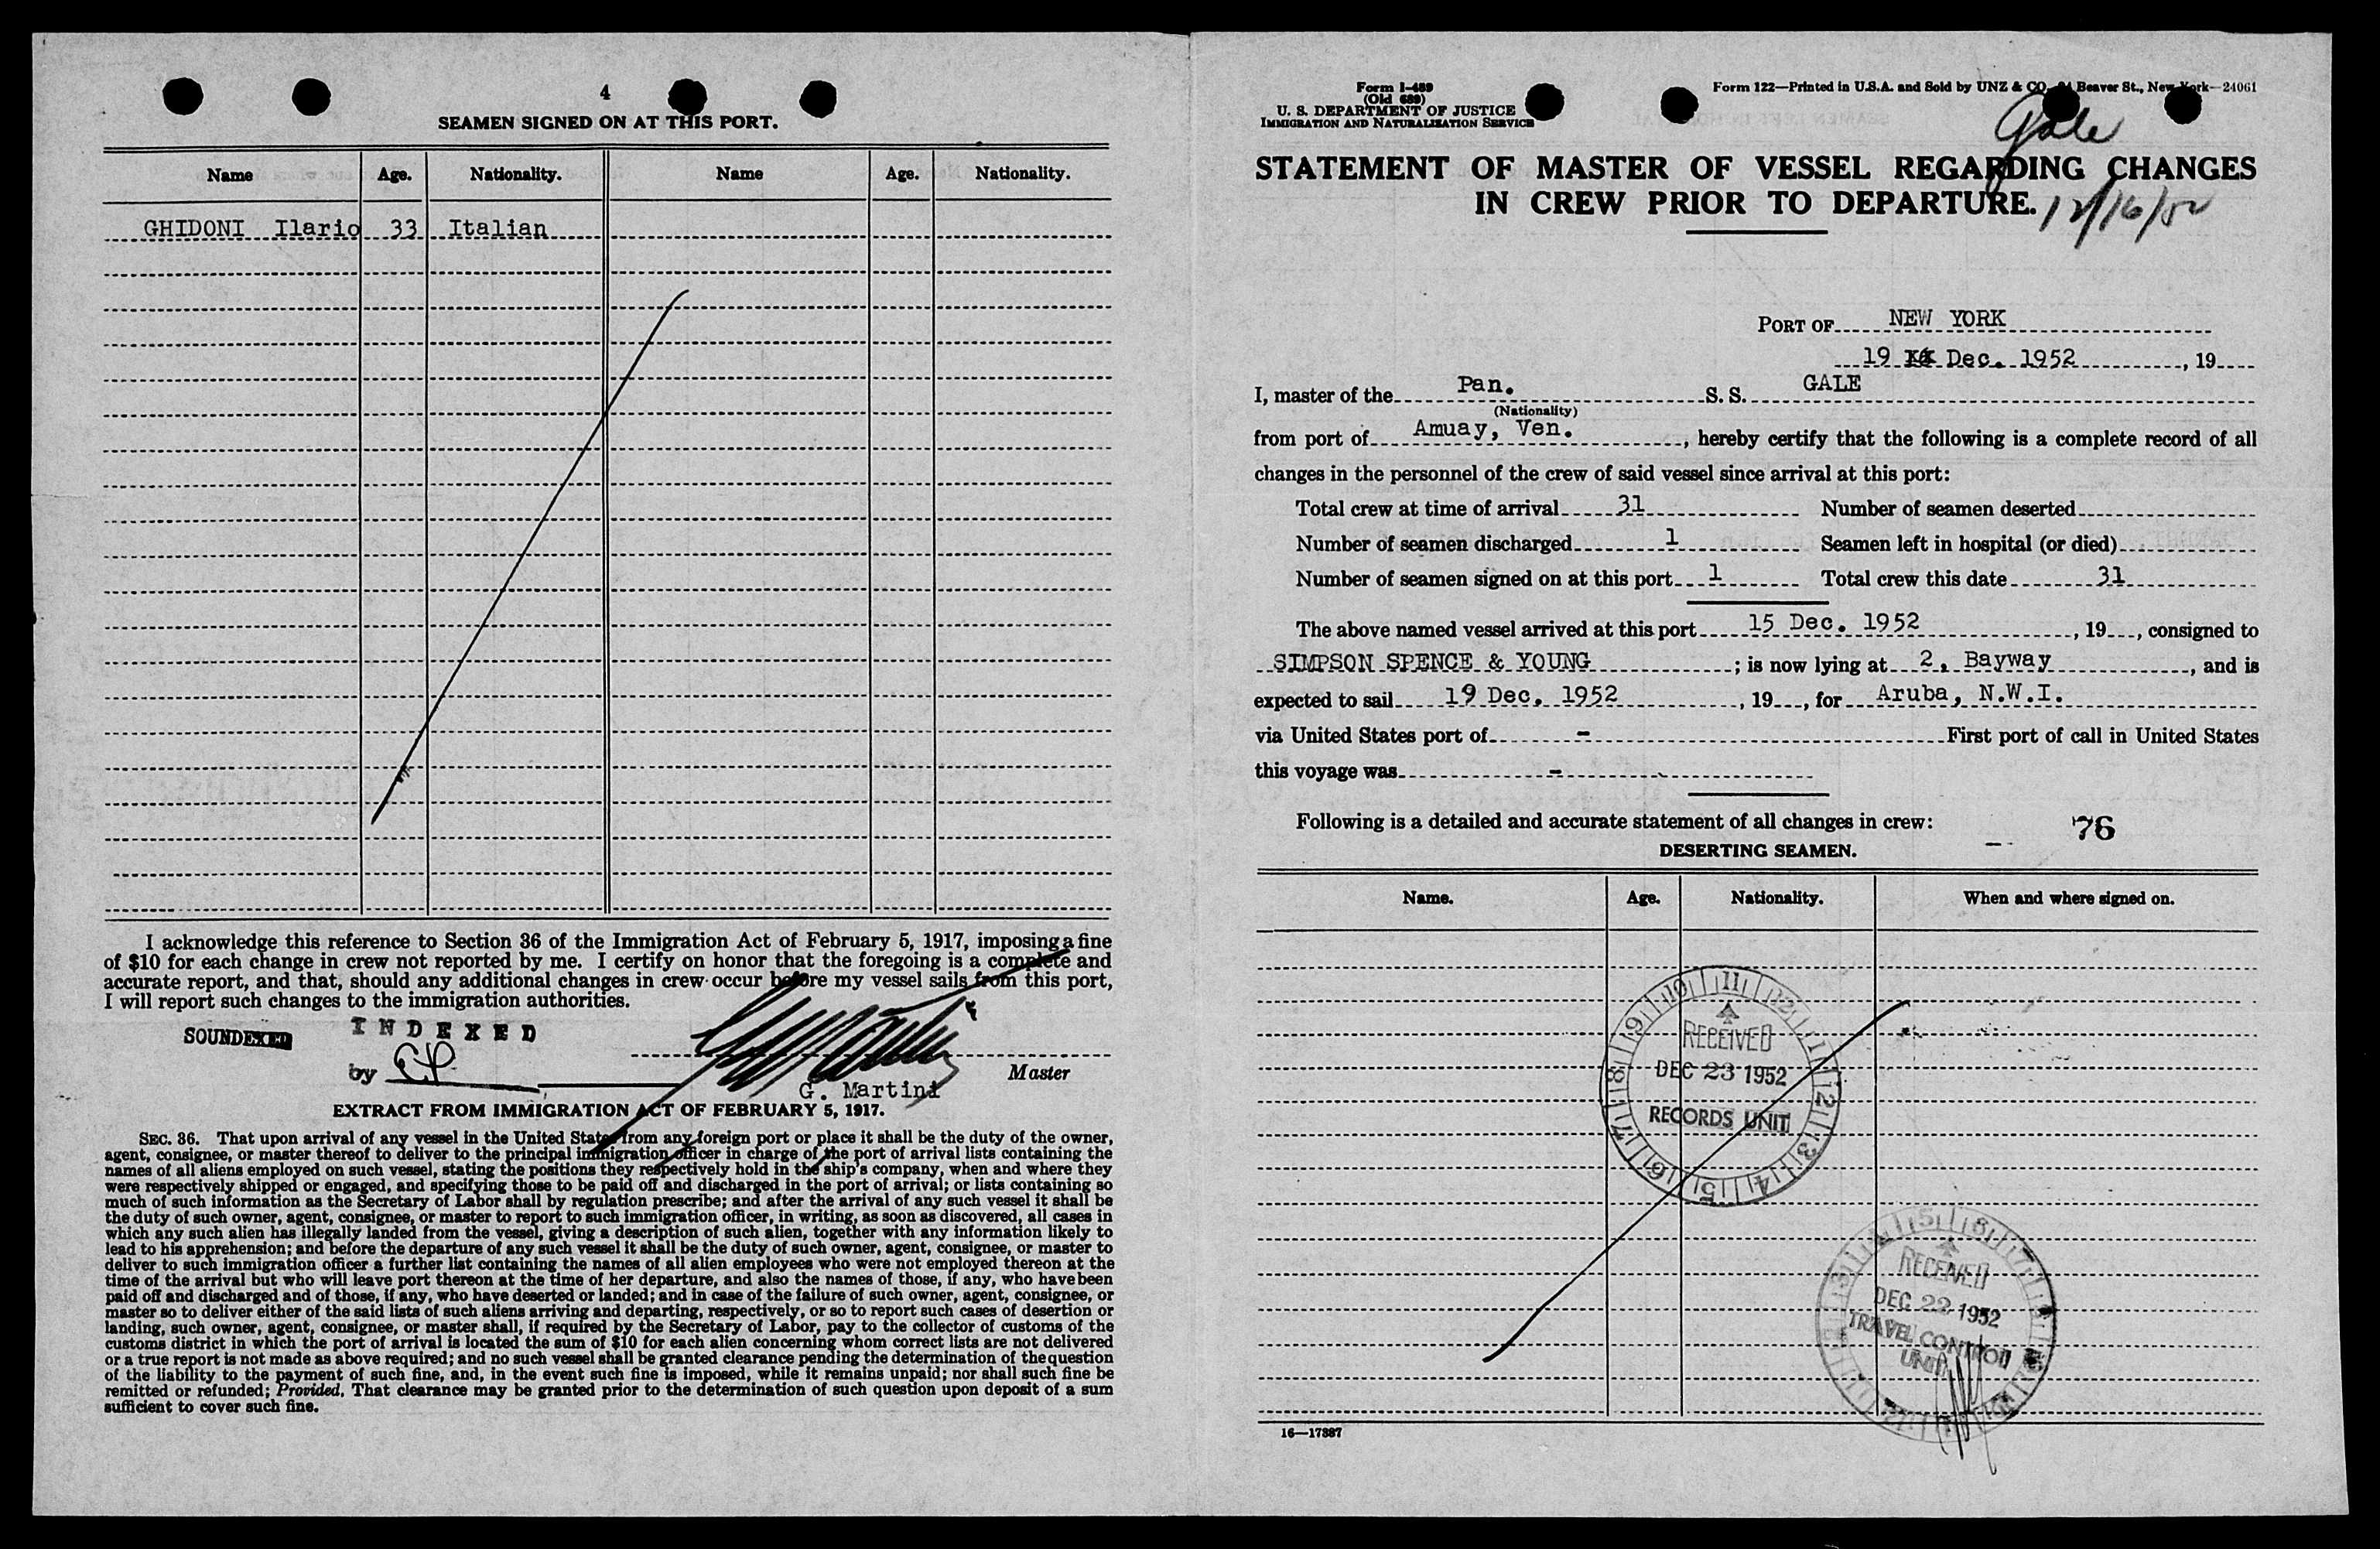 4
SEAMEN SIGNED ON AT THIS PORT.
Name Age. Nationality. Name Age. Nationality.
GHIDONI Ilario 33 Italian
I acknowledge this reference to Section 36 of the Immigration Act of February 5, 1917, imposing a fine
of $10 for each change in crew not reported by me. I certify on honor that the foregoing is a complete and
accurate report, and that, should any additional changes in crew occur before my vessel sails from this port,
I will report such changes to the immigration authorities.
SOUNDEXED INDEXED
by
Master
G. Martini
EXTRACT FROM IMMIGRATION ACT OF FEBRUARY 5, 1917.
SEC. 36. That upon arrival of any vessel in the United States from any foreign port or place it shall be the duty of the owner,
agent, consignee, or master thereof to deliver to the principal immigration officer in charge of the port of arrival lists containing the
names of all aliens employed on such vessel, stating the positions they respectively hold in the ship's company, when and where they
were respectively shipped or engaged, and specifying those to be paid off and discharged in the port of arrival; or lists containing so
much of such information as the Secretary of Labor shall by regulation prescribe; and after the arrival of any such vessel it shall be
the duty of such owner, agent, consignee, or master to report to such immigration officer, in writing, as soon as discovered, all cases in
which any such alien has illegally landed from the vessel, giving a description of such alien, together with any information likely to
lead to his apprehension; and before the departure of any such vessel it shall be the duty of such owner, agent, consignee, or master to
deliver to such immigration officer a further list containing the names of all alien employees who were not employed thereon at the
time of the arrival but who will leave port thereon at the time of her departure, and also the names of those, if any, who have been
paid off and discharged and of those, if any, who have deserted or landed; and in case of the failure of such owner, agent, consignee, or
master so to deliver either of the said lists of such aliens arriving and departing, respectively, or so to report such cases of desertion or
landing, such owner, agent, consignee, or master shall, if required by the Secretary of Labor, pay to the collector of customs of the
customs district in which the port of arrival is located the sum of $10 for each alien concerning whom correct lists are not delivered
or a true report is not made as above required; and no such vessel shall be granted clearance pending the determination of the question
of the liability to the payment of such fine, and, in the event such fine is imposed, while it remains unpaid; nor shall such fine be
remitted or refunded; Provided, That clearance may be granted prior to the determination of such question upon deposit of a sum
sufficient to cover such fine.
Form I-489
(Old 689)
U. S. DEPARTMENT OF JUSTICE
IMMIGRATION AND NATURALIZATION SERVICE
Form 122—Printed in U.S.A. and Sold by UNZ & CO. Beaver St., New York—24061
Gale
STATEMENT OF MASTER OF VESSEL REGARDING CHANGES
IN CREW PRIOR TO DEPARTURE.
12/16/52
PORT OF NEW YORK
19 Dec. 1952, 19
I, master of the Pan. S. S. GALE
(Nationality)
from port of Amuay, Ven., hereby certify that the following is a complete record of all
changes in the personnel of the crew of said vessel since arrival at this port:
Total crew at time of arrival 31 Number of seamen deserted
Number of seamen discharged 1 Seamen left in hospital (or died)
Number of seamen signed on at this port 1 Total crew this date 31
The above named vessel arrived at this port 15 Dec. 1952, 19, consigned to
SIMPSON SPENCE & YOUNG; is now lying at 2, Bayway, and is
expected to sail 19 Dec. 1952, 19, for Aruba, N.W.I.
via United States port of - First port of call in United States
this voyage was -
Following is a detailed and accurate statement of all changes in crew:
76
DESERTING SEAMEN.
Name. Age. Nationality. When and where signed on.
RECEIVED
DEC 23 1952
RECORDS UNIT
1 2 3 4 5 6 7 8 9 10 11 12
RECEIVED
DEC 22 1952
TRAVEL CONTROL
UNIT
16—17887